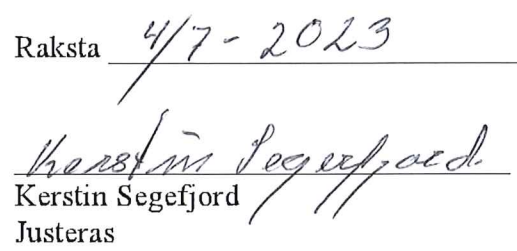 Raksta 4/7 - 2023
Kerstin Segerfjord.
Kerstin Segefjord
Justeras